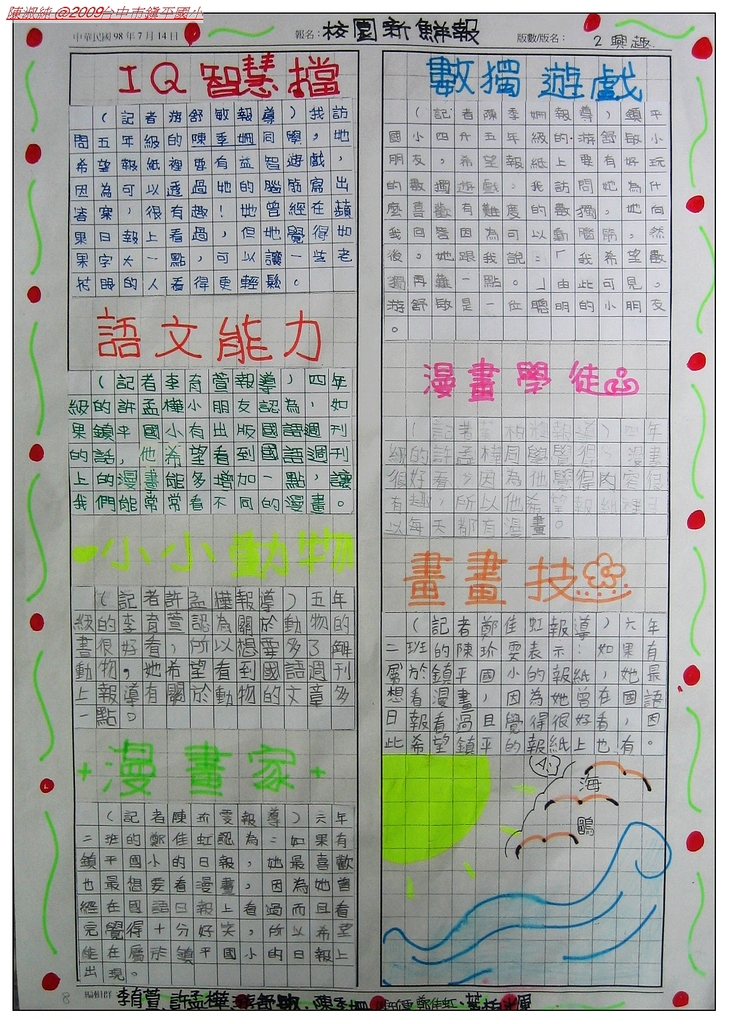 陳淑純 @2009台中市鎮平國小
中華民國 98 年 7 月 14 日
報名：校園新鮮報
版數/版名：2 興趣
IQ智慧擋
（記者游舒敏報導）我訪
問五年級的陳季姍同學，她
希望報紙裡要有益智遊戲，
因為可以透過她的腦筋寫出
答案，很有趣！她曾經在蘋
果日報上看過，但她覺得如
果字大一點，可以讓一些老
花眼的人看得更輕鬆。
語文能力
（記者李育萱報導）四年
級的許孟樺小朋友認為，如
果鎮平國小有出版國語週刊
的話，他希望看到國語週刊
上的漫畫能多增加一點，讓
我們能常常看不同的漫畫。
小小動物
（記者許孟樺報導）五年
級的李育萱認為關於動物的
書很好看，所以想要多了解
動物，她希望看到國語週刊
上報導有關於動物的文章多
一點。
漫畫家
（記者陳玠雯報導）六年
二班的鄭佳虹認為：如果有
鎮平國小的日報，她最喜歡
也最想要看漫畫，因為她曾
經在國語日報上看過而且看
完覺得十分好笑，所以希望
能在屬於鎮平國小的日報上
出現。
數獨遊戲
（記者陳季姍報導）鎮平
國小四升五年級的游舒敏小
朋友，希望報紙上要有好玩
的數獨遊戲。我訪問她為什
麼喜歡有難度的數獨，她向
我回答因為可以動腦筋，然
後，她跟我說：「我希望數
獨再難一點。」由此可見，
游舒敏是一位聰明的小朋友
。
漫畫學徒
級的許孟樺同學覺得，漫畫
很好看，因為他覺得內容很
有趣，所以他希望報紙裡可
以每天都有漫畫。
畫畫技
（記者鄭佳虹報導）六年
二班的陳玠雯表示：如果有
屬於鎮平國小的報紙，她最
想看漫畫，因為她曾在國語
日報看過且覺得很好看，因
此希望鎮平的報紙上也有。
海
鷗
李育萱,許孟樺,游舒敏,陳季姍